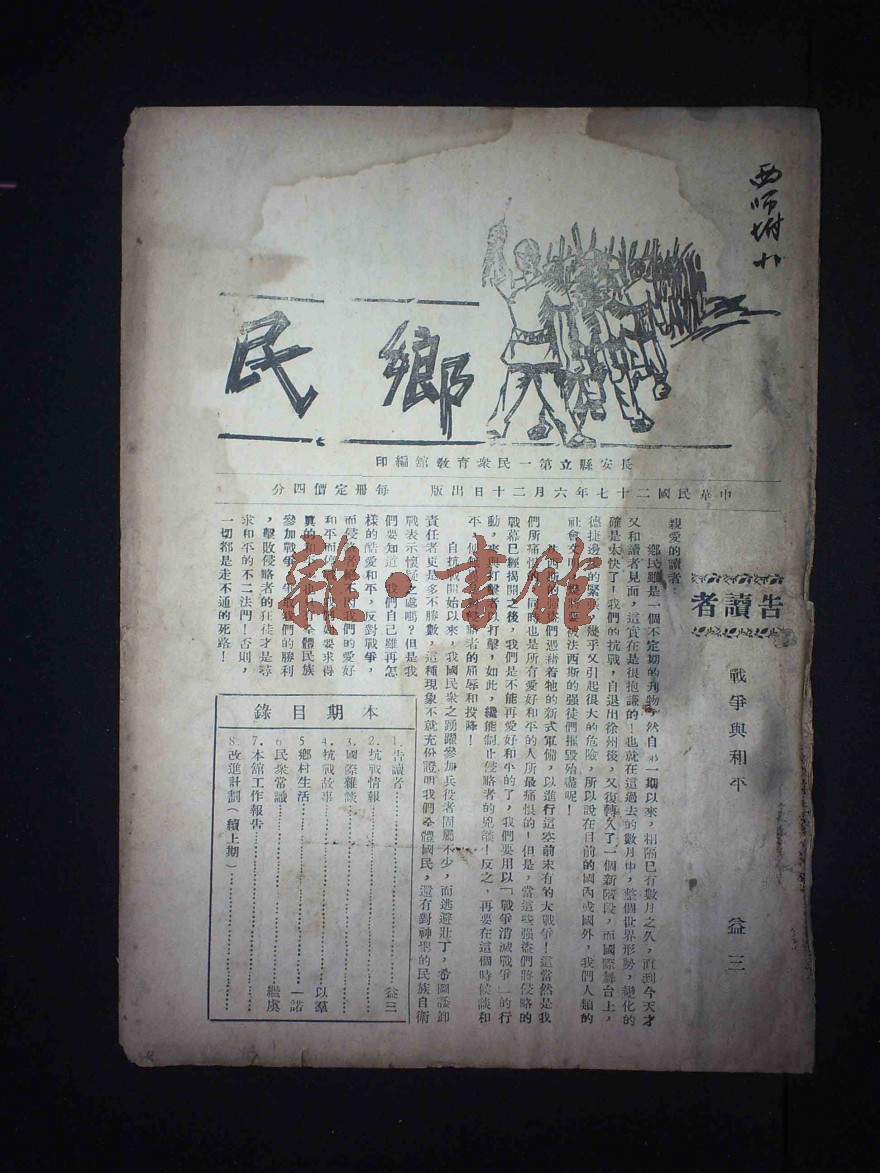 西师附小
鄉民
長安縣立第一民衆教育館編印
中華民國二十七年六月二十日出版　每冊定價四分
告讀者
戰爭與和平
益三
親愛的讀者：
鄉民雖是一個不定期的刊物，然自一期以來，相隔已有數月之久，直到今天才
又和讀者見面，這實在是很抱謙的！也就在這過去的數月中，整個世界形勢，變化的
確是太快了！我們的抗戰，自退出徐州後，又復轉入了一個新階段，而國際舞台上，
德捷邊境的緊張幾乎又引起很大的危險，所以說在目前的國內或國外，我們人類的
社會文明被法西斯的强徒們摧毀殆盡呢！
法西斯的强盜們憑藉着牠的新式軍備，以進行這空前未有的大戰爭！這當然是我
們所痛恨的，同時也是所有愛好和平的人所最痛恨的！但是，當這些强盜們將侵略的
戰幕已經揭開之後，我們是不能再愛好和平的了，我們要用以「戰爭消滅戰爭」的行
動，來與打擊者以打擊，如此，纔能制止侵略者的兇燄！反之，再要在這個時候談和
平，侵略者的屈辱和投降！
自抗戰開始以來，我國民衆之踴躍參加兵役者固屬不少，而逃避壯丁，希圖諉卸
責任者更是多不勝數，這種現象不就充份證明我們全體國民，還有對神聖的民族自衛
戰表示懷疑之處嗎？但是我
們要知道，我們自己雖再怎
樣的酷愛和平，反對戰爭，
而侵略者不因我們的愛好
和平而停戰，我們要求得
真的和平，也只有全體民族
參加戰爭，爭取我們的勝利
，擊敗侵略者的狂徒才是尋
求和平的不二法門！否則，
一切都是走不通的死路！
本期目錄
1.告讀者……益三
2.抗戰情報……
3.國際雜談……
4.抗戰故事……以羣
5.鄉村生活……一諾
6.民衆常識……繼虞
7.本館工作報告……
8.改進計劃（續上期）……
雜·書館